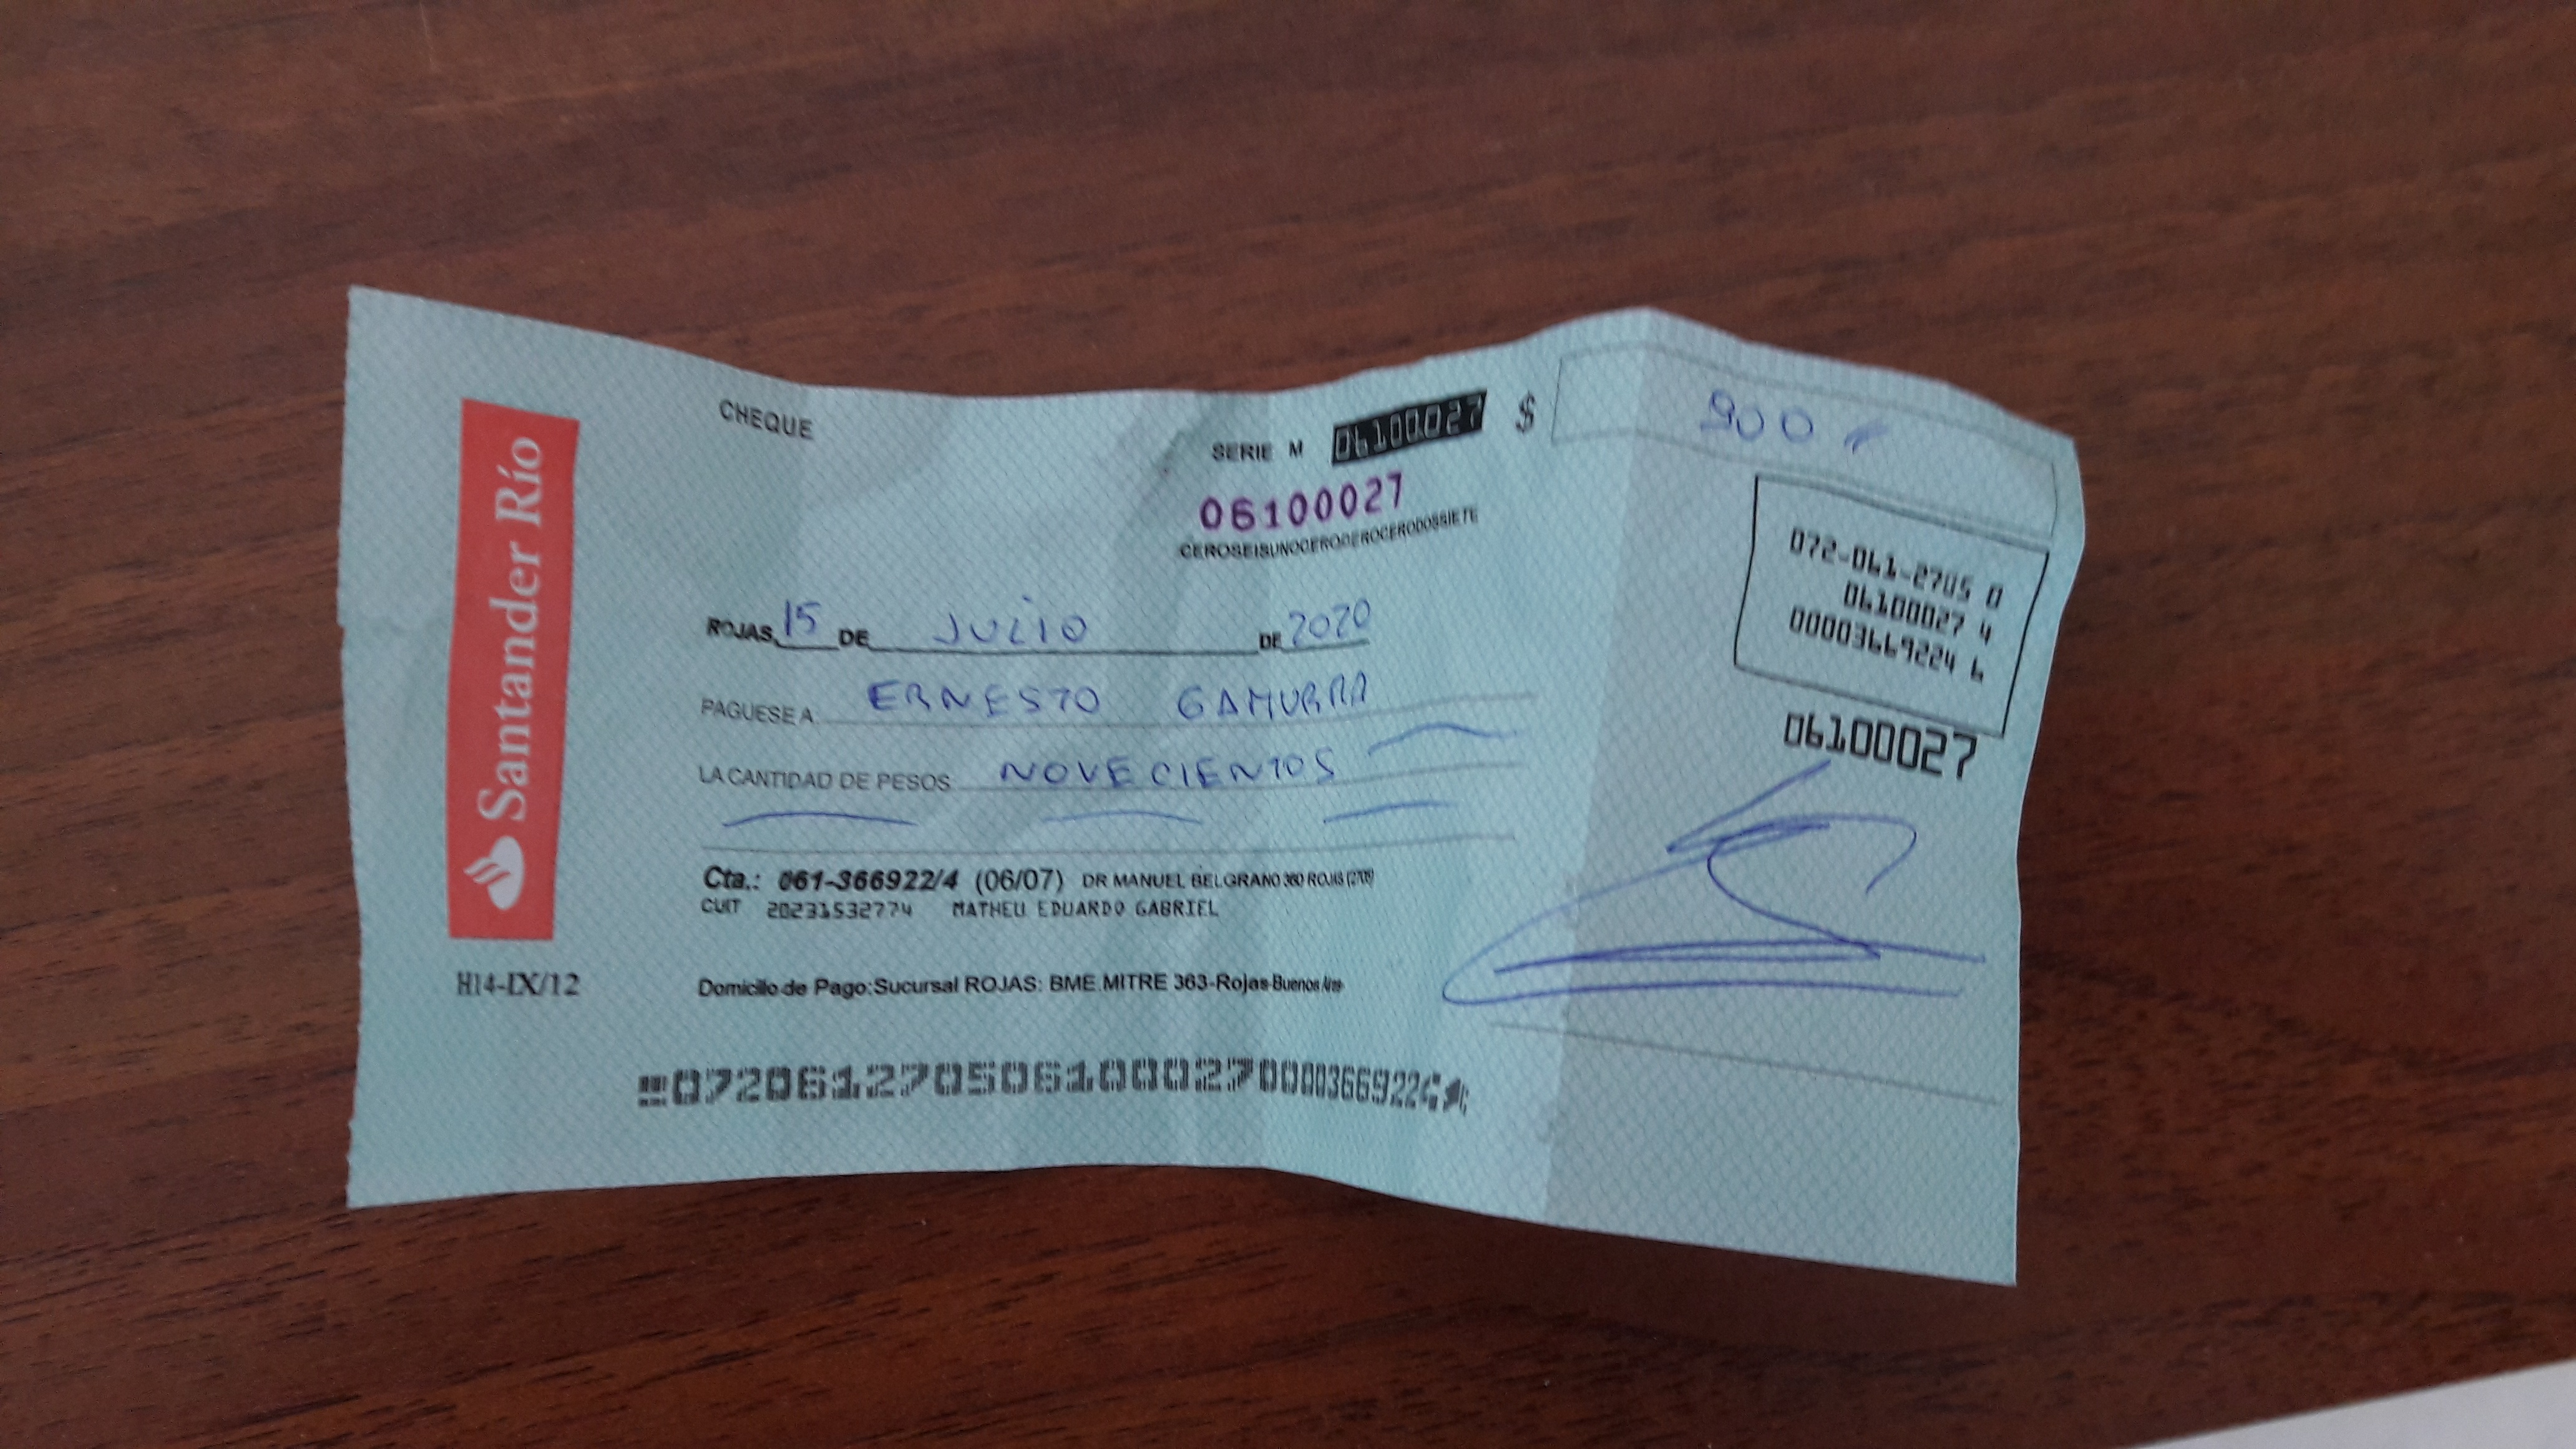 CHEQUE
SERIE M 06100027 $ 900
06100027
CEROSEISUNOCEROCEROCERODOSSIETE
072-061-2705 0
06100027 4
00003669224 6
06100027
ROJAS, 15 DE JULIO DE 2020
PAGUESE A ERNESTO GAMURRA
LA CANTIDAD DE PESOS NOVECIENTOS
Cta.: 061-366922/4 (06/07) DR MANUEL BELGRANO 360 ROJAS (2705)
CUIT 20231532774 MATHEU EDUARDO GABRIEL
Domicilio de Pago:Sucursal ROJAS: BME.MITRE 363-Rojas-Buenos Aires-
Santander Río
H14-IX/12
07206127050610002700003669224